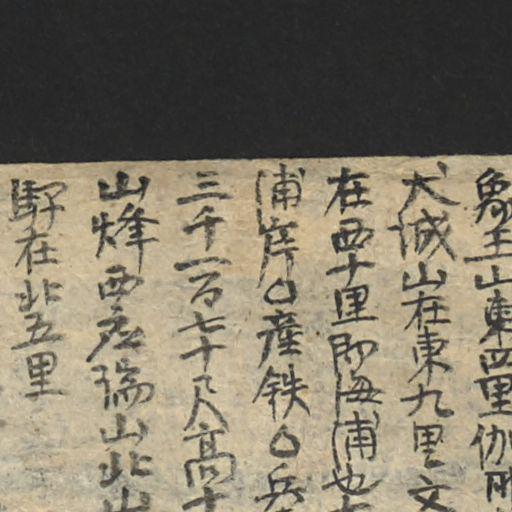 象王山東四里伽耶
犬城山在東九里文
在西十里即海浦也
浦岸○產鉄○兵
三千一百七十尺高十
山烽西应瑞山北山
駅在北五里